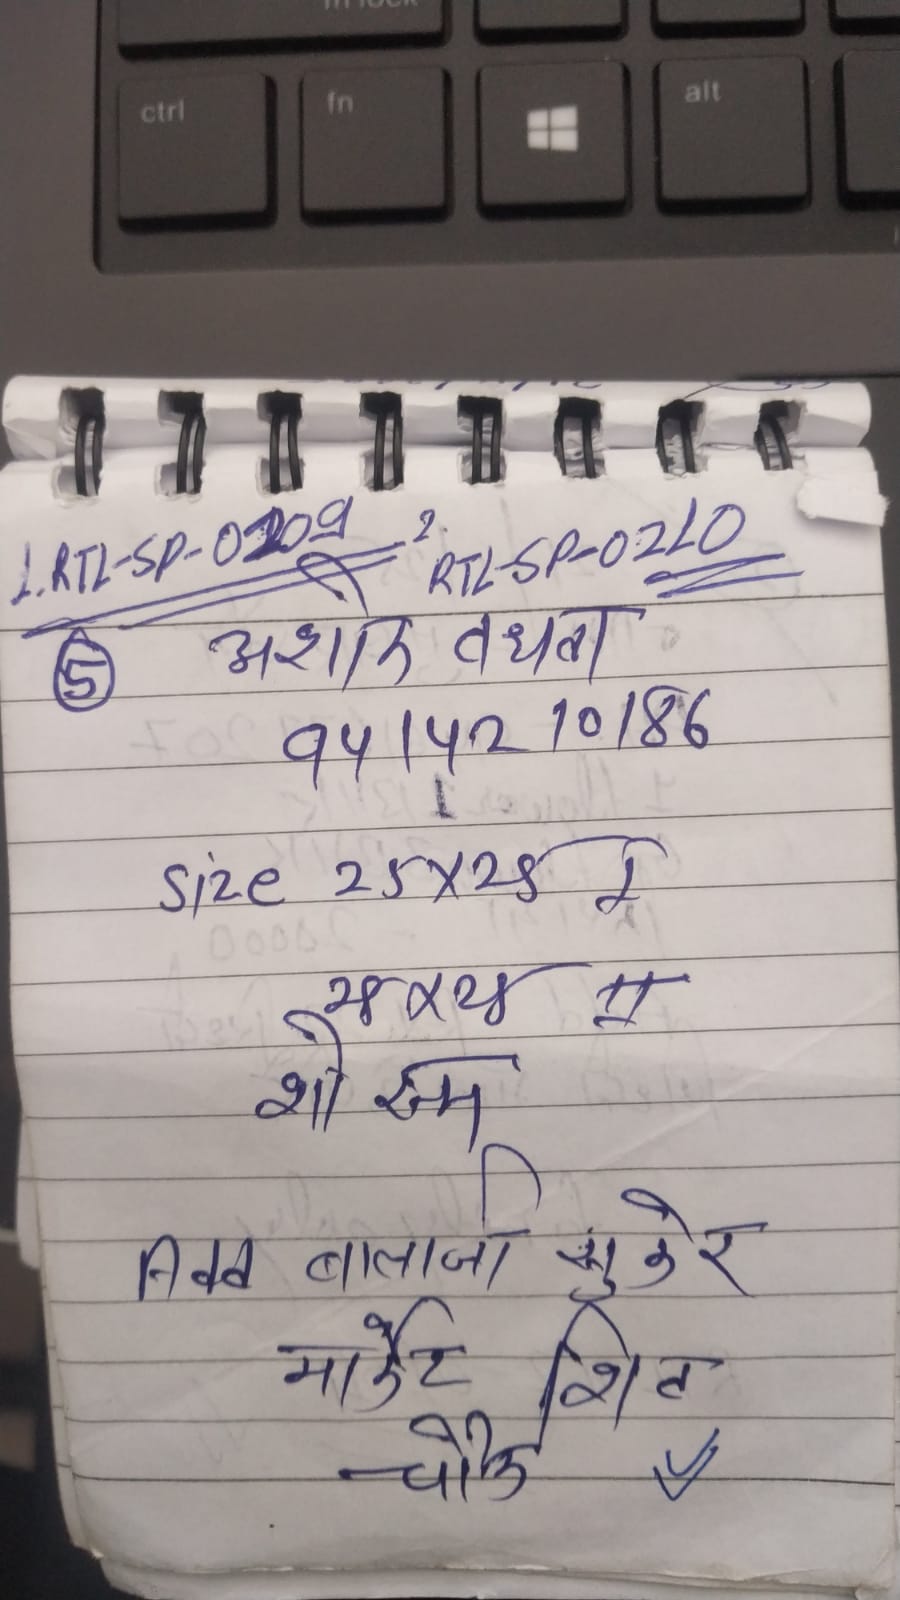 ctrl fn alt
1. RTL-SP-0209 2. RTL-SP-0210
5 अशोक वधवा
94142 10186
Size 25x25 I
शो रूम
Add बालाजी सुकेर
मार्केट शिव
चौक